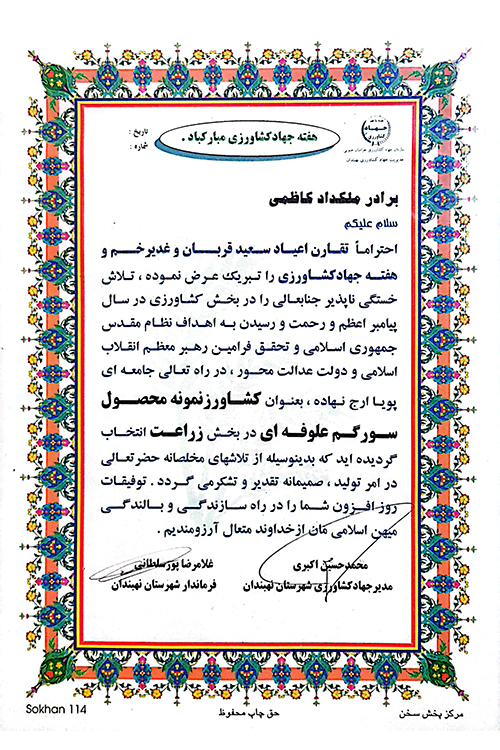 هفته جهاد کشاورزی مبارکباد .
تاریخ :
شماره :
جهاد
کشاورزی
سازمان جهاد کشاورزی خراسان جنوبی
مدیریت جهاد کشاورزی نهبندان
برادر ملکداد کاظمی
سلام علیکم
احتراماً تقارن اعیاد سعید قربان و غدیرخم و
هفته جهادکشاورزی را تبریک عرض نموده ، تلاش
خستگی ناپذیر جنابعالی را در بخش کشاورزی در سال
پیامبر اعظم و رحمت و رسیدن به اهداف نظام مقدس
جمهوری اسلامی و تحقق فرامین رهبر معظم انقلاب
اسلامی و دولت عدالت محور ، در راه تعالی جامعه ای
پویا ارج نهاده ، بعنوان کشاورزنمونه محصول
سورگم علوفه ای در بخش زراعت انتخاب
گردیده اید که بدینوسیله از تلاشهای مخلصانه حضرتعالی
در امر تولید ، صمیمانه تقدیر و تشکرمی گردد . توفیقات
روزافزون شما را در راه سازندگی و بالندگی
میهن اسلامی مان ازخداوند متعال آرزومندیم .
محمدحسین اکبری
مدیرجهادکشاورزی شهرستان نهبندان
غلامرضا پورسلطانی
فرماندار شهرستان نهبندان
مرکز پخش سخن
حق چاپ محفوظ
Sokhan 114